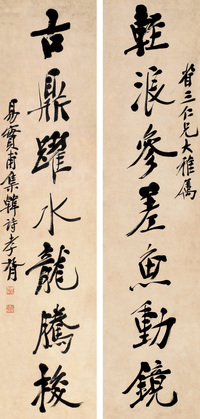 三仁兄大雅屬
輕浪參差魚動鏡
古鼎躍水龍騰梭
易實甫集韓詩孝胥